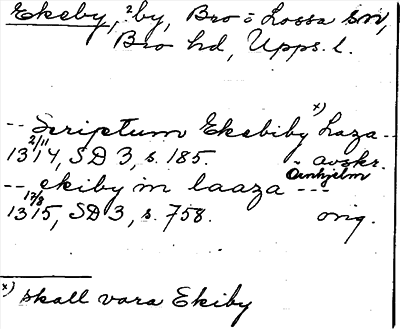 Ekeby, ²by, Bro o Lossa sn,
Bro hd, Upps. l.
x)
-- Scriptum Ekebiby Laza --
2/11
1314, SD 3, s. 185. - avskr.
Örnhjelm
-- ekiby in laaza ---
17/3
1315, SD 3, s. 758. orig.
x) skall vara Ekiby